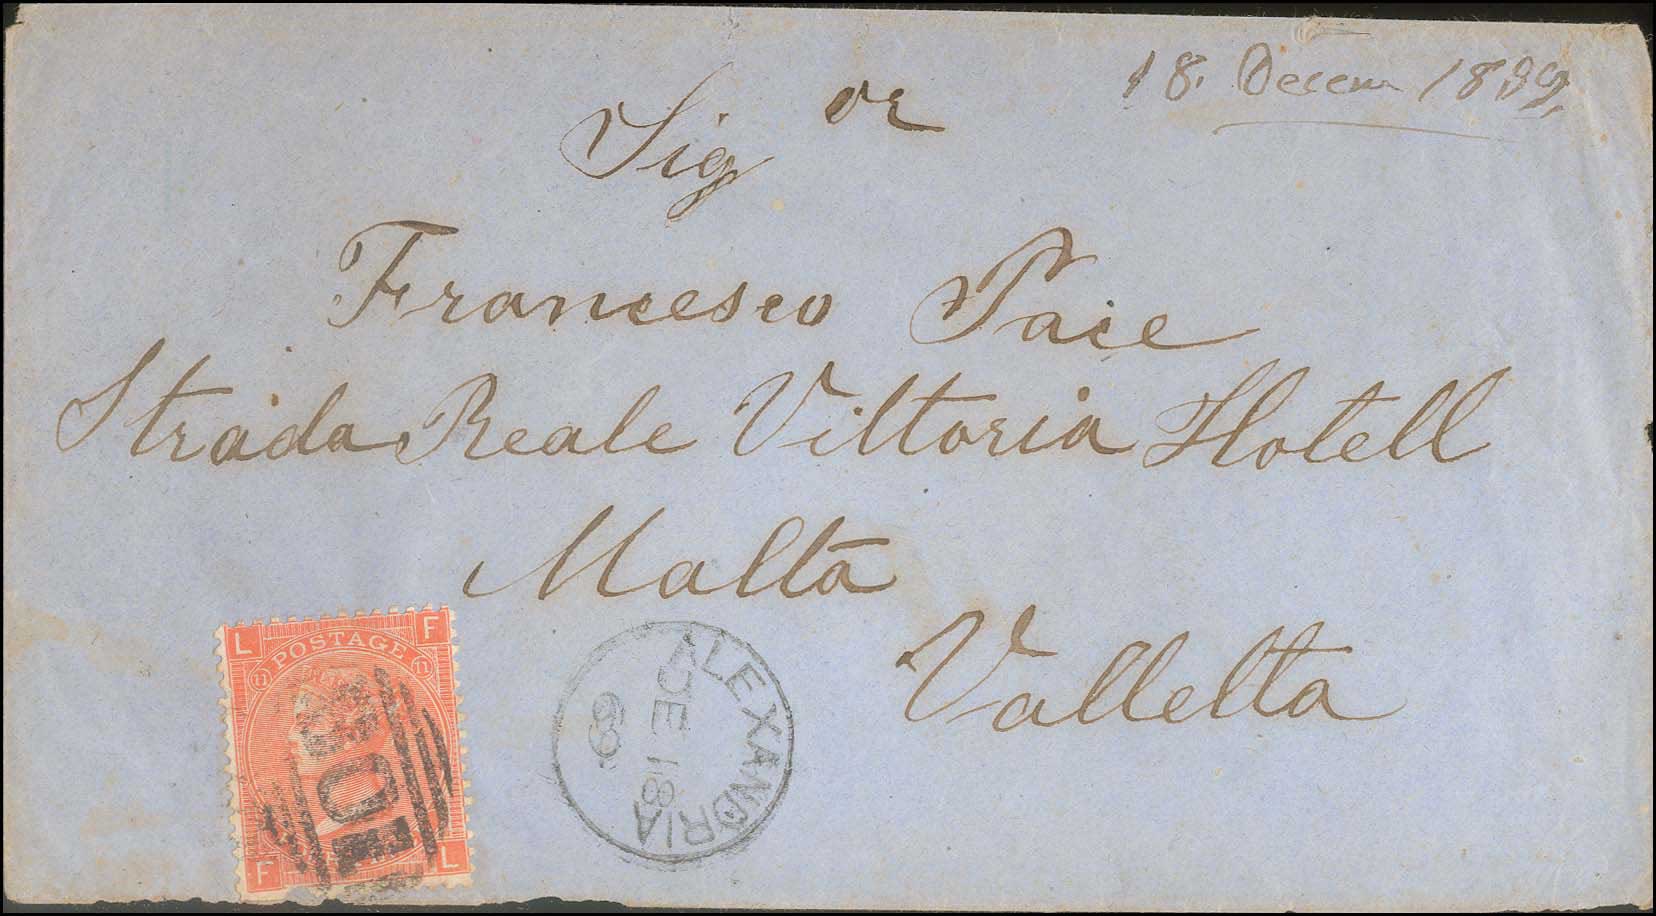 18. Decem 1899.
Sig or
Francesco Pace
Strada Reale Vittoria Hotell
Malta
Valletta
L F
POSTAGE
11 11
B01
F L
ALEXANDRIA
DE 18
69